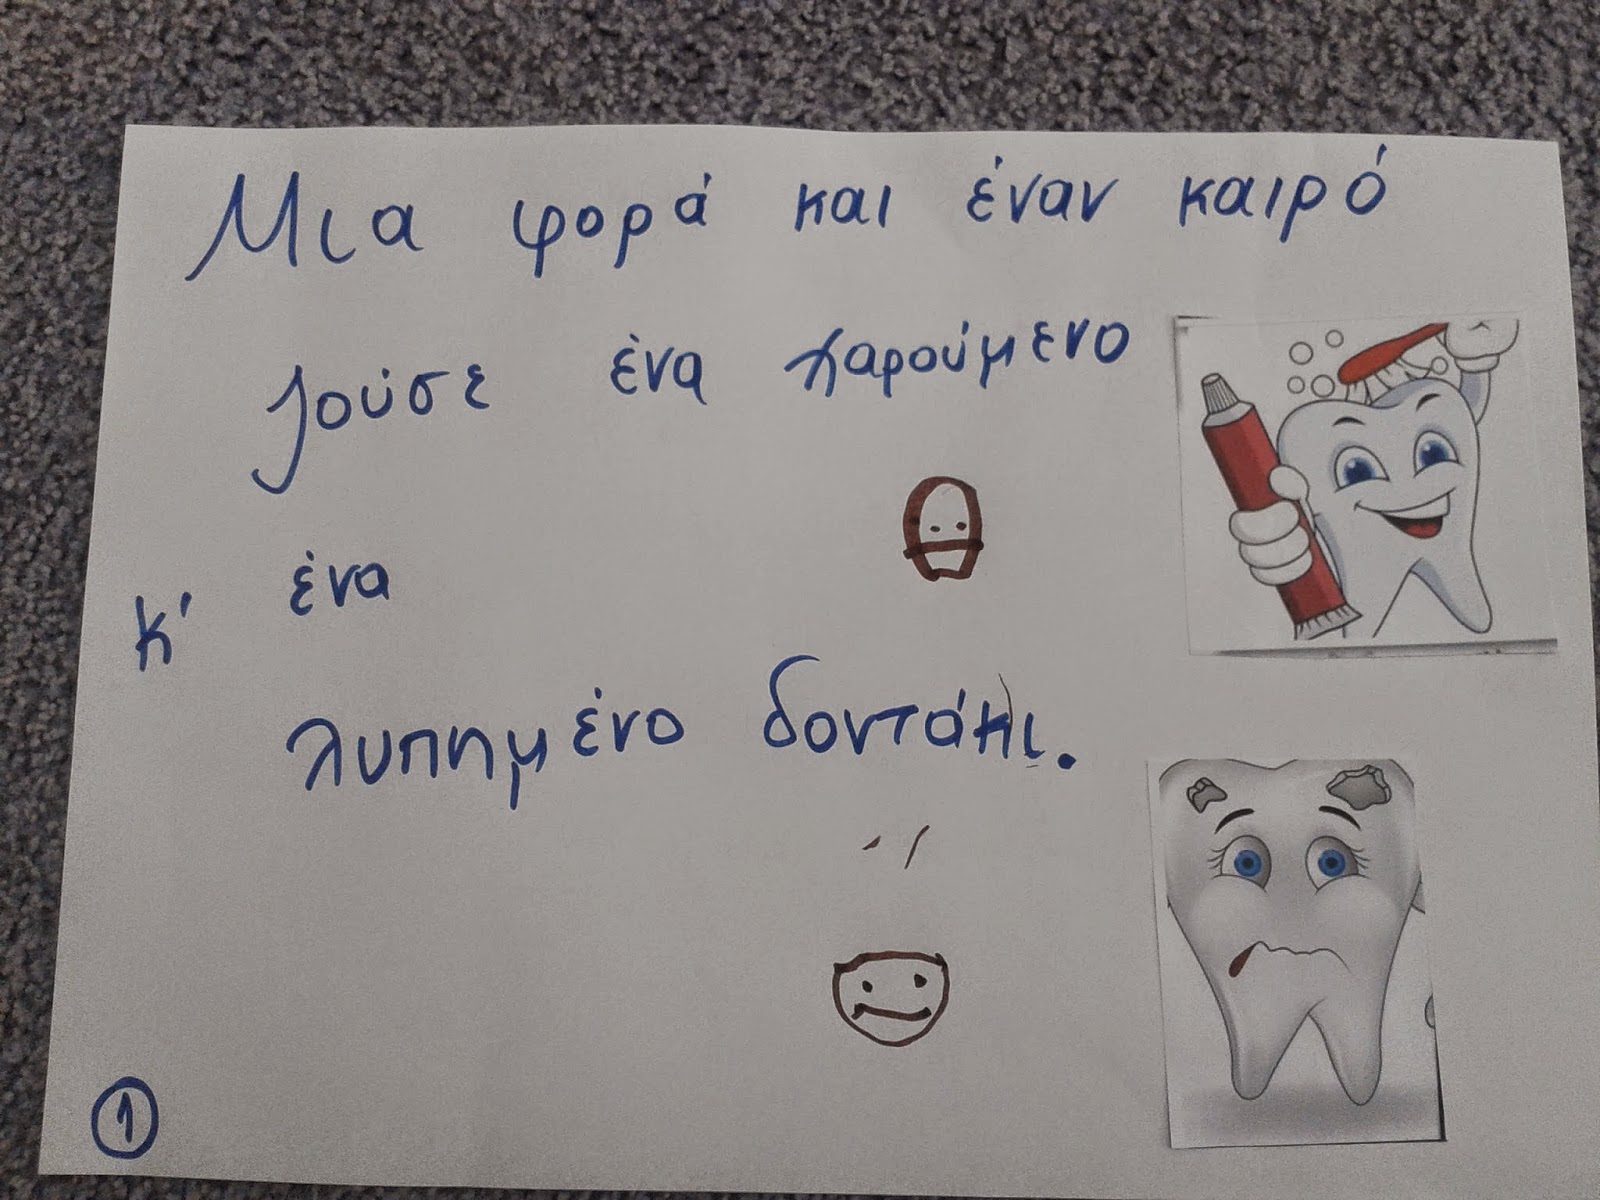 Μια φορά και έναν καιρό
ζούσε ένα χαρούμενο
κ' ένα
λυπημένο δοντάκι.
1